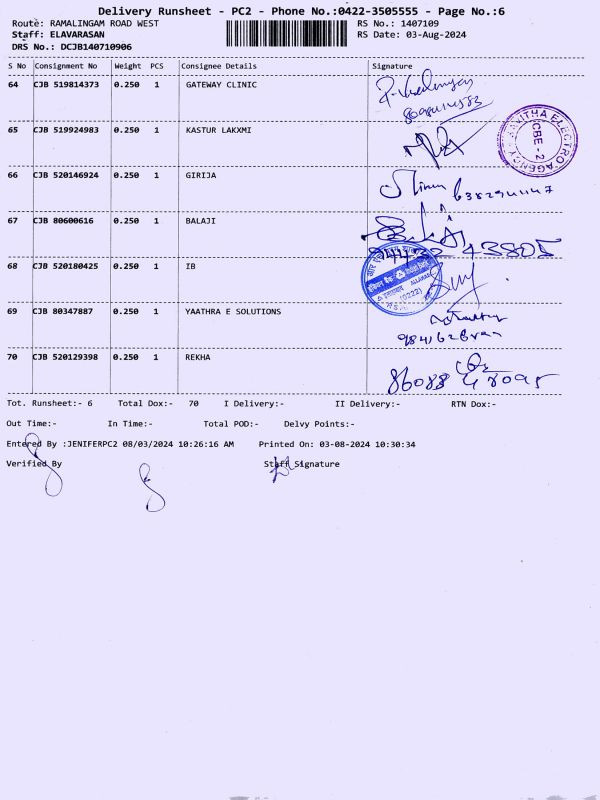 Delivery Runsheet - PC2 - Phone No.:0422-3505555 - Page No.:6
Route: RAMALINGAM ROAD WEST RS No.: 1407109
Staff: ELAVARASAN RS Date: 03-Aug-2024
DRS No.: DCJB140710906
S No Consignment No Weight PCS Consignee Details Signature
64 CJB 519814373 0.250 1 GATEWAY CLINIC
65 CJB 519924983 0.250 1 KASTUR LAKXMI
KAVITHA ELECTRO AGENCY
CBE - 2
66 CJB 520146924 0.250 1 GIRIJA
67 CJB 80600616 0.250 1 BALAJI
94432 43805
68 CJB 520180425 0.250 1 IB
(0222)
69 CJB 80347887 0.250 1 YAATHRA E SOLUTIONS
70 CJB 520129398 0.250 1 REKHA
Tot. Runsheet:- 6 Total Dox:- 70 I Delivery:- II Delivery:- RTN Dox:-
Out Time:- In Time:- Total POD:- Delvy Points:-
Entered By :JENIFERPC2 08/03/2024 10:26:16 AM Printed On: 03-08-2024 10:30:34
Verified By Staff Signature